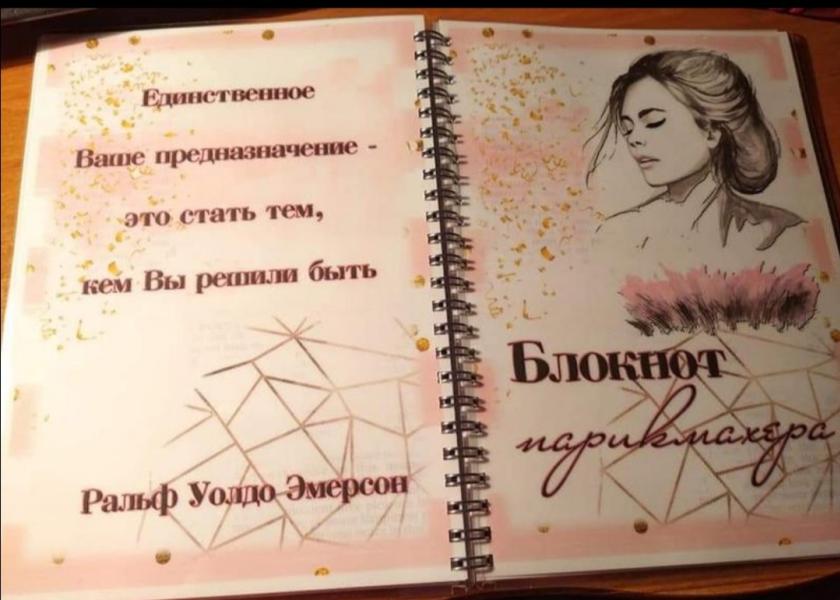 Единственное
Ваше предназначение -
это стать тем,
кем Вы решили быть
Ральф Уолдо Эмерсон
Блокнот
парикмахера